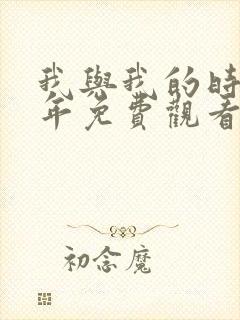 我與我的時
年免費觀看
初念魔